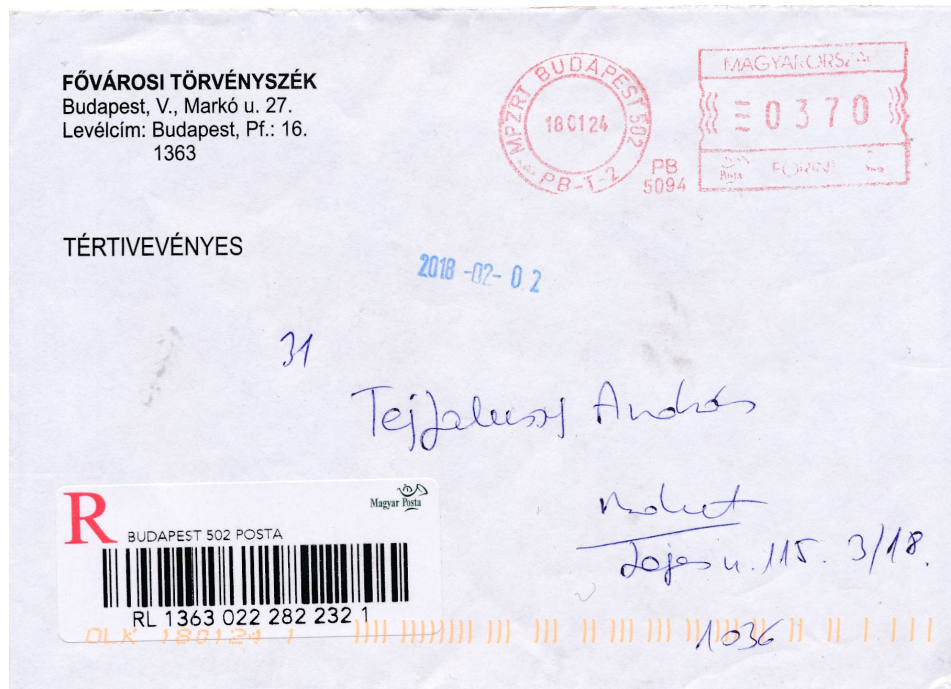 FŐVÁROSI TÖRVÉNYSZÉK
Budapest, V., Markó u. 27.
Levélcím: Budapest, Pf.: 16.
1363
MPZRT BUDAPEST 502
18 01 24
PB-T-2
PB
5094
MAGYARORSZÁG
0370
Posta FORINT
TÉRTIVEVÉNYES
2018-02-02
31
András
u. 115. 3/18.
1036
R
Magyar Posta
BUDAPEST 502 POSTA
RL 1363 022 282 232 1
OLK 180124 1